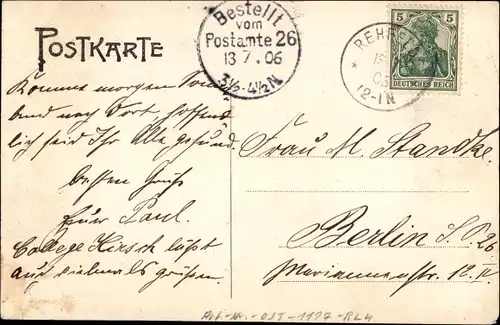 POSTKARTE
Bestellt
vom
Postamte 26
13 7. 06
3½-4½N
REHFEL
12-1N
5 5
DEUTSCHES REICH
Komme morgen Sonn
abend nach dort hoffent
lich seid Ihr Alle gesund.
besten Gruß
Euer Paul.
College Hirsch läßt
auch vielmals grüßen.
Frau M. Standke.
Berlin S.O. 26
Mariannenstr. 12 II.